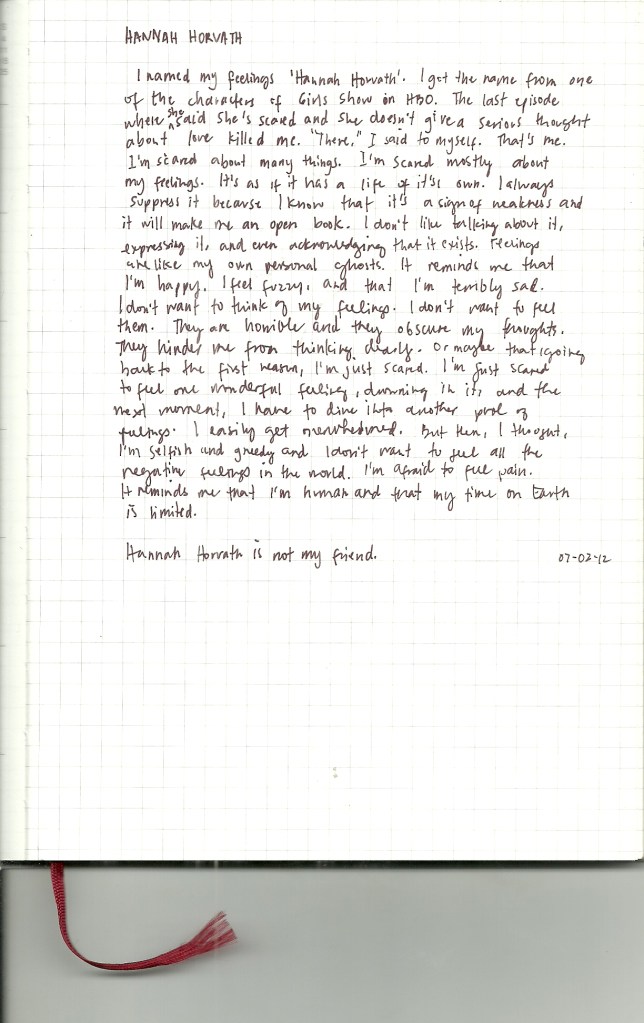 HANNAH HORVATH
I named my feelings 'Hannah Horvath'. I got the name from one
of the characters of Girls show on HBO. The last episode
where she said she's scared and she doesn't give a serious thought
about love killed me. "There," I said to myself. That's me.
I'm scared about many things. I'm scared mostly about
my feelings. It's as if it has a life of it's own. I always
suppress it because I know that it's a sign of weakness and
it will make me an open book. I don't like talking about it,
expressing it, and even acknowledging that it exists. Feelings
are like my own personal ghosts. It reminds me that
I'm happy. I feel fuzzy, and that I'm terribly sad.
I don't want to think of my feelings. I don't want to feel
them. They are horrible and they obscure my thoughts.
They hinder me from thinking clearly. Or maybe that going
back to the first reason, I'm just scared. I'm just scared
to feel one wonderful feeling, drowning in it, and the
next moment, I have to dive into another pool of
feelings. I easily get overwhelmed. But then, I thought,
I'm selfish and greedy and I don't want to feel all the
negative feelings in the world. I'm afraid to feel pain.
It reminds me that I'm human and that my time on Earth
is limited.
Hannah Horvath is not my friend. 07-02-12